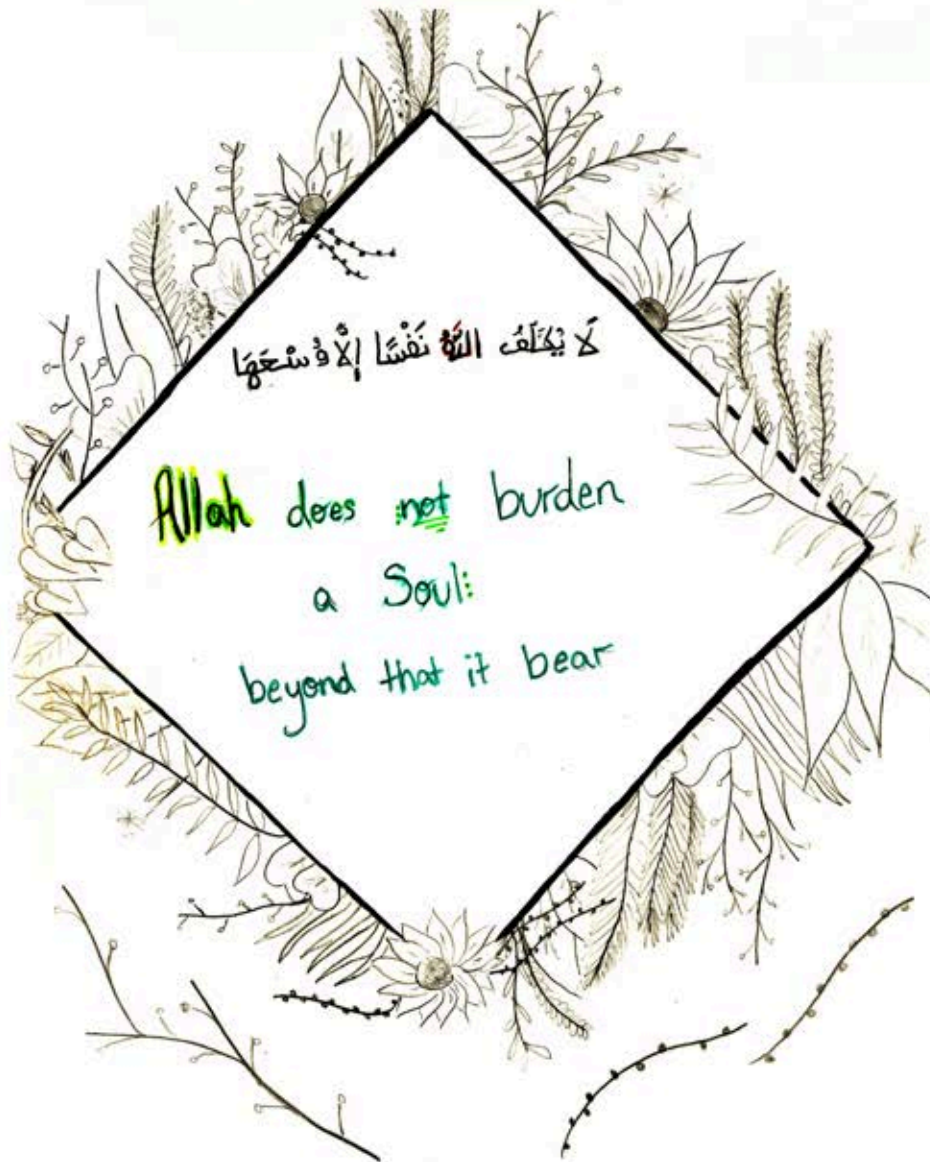 لَا يُكَلِّفُ اللَّهُ نَفْسًا إِلَّا وُسْعَهَا
Allah does not burden
a Soul:
beyond that it bear